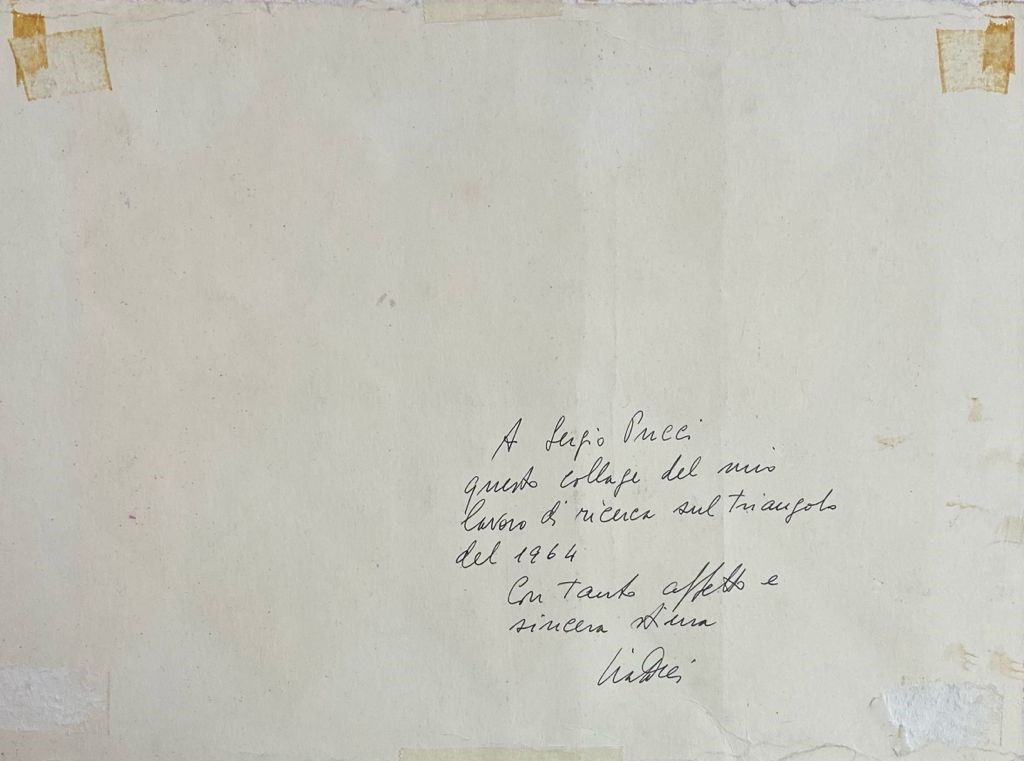 A Sergio Pucci
questo collage del mio
lavoro di ricerca sul triangolo
del 1964
Con tanto affetto e
sincera stima
Lia Drei